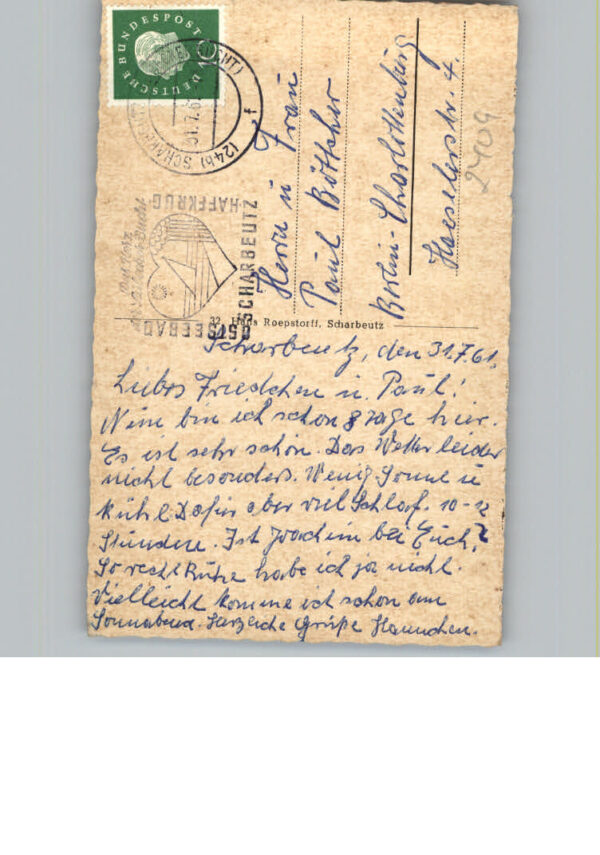 DEUTSCHE BUNDESPOST
(24b) SCHARBEUTZ
31.7.61
f
OSTSEEBAD
SCHARBEUTZ
HAFFKRUG
Herrn u Frau
Paul Böttcher
Berlin-Charlottenburg
Haeselerstr. 4.
32 Hans Roepstorff, Scharbeutz
Scharbeutz, den 31.7.61.
Liebes Friedchen u. Paul!
Nun bin ich schon 8 Tage hier.
Es ist sehr schön. Das Wetter leider
nicht besonders. Wenig Sonne u
kühl. Dafür aber viel Schlaf. 10-12
Stunden. Ist Joachim bei Euch?
So recht Ruhe habe ich ja nicht.
Vielleicht komme ich schon am
Sonnabend. Herzliche Grüße Hannchen.